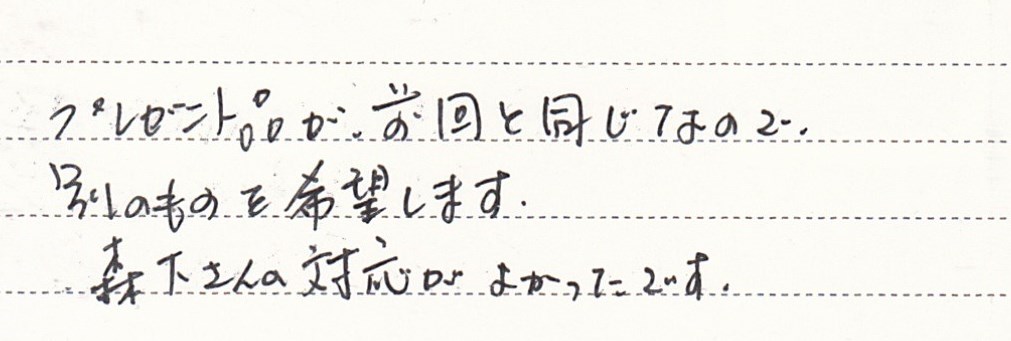 プレゼント品が、前回と同じなので、
別のものを希望します。
森下さんの対応がよかったです。